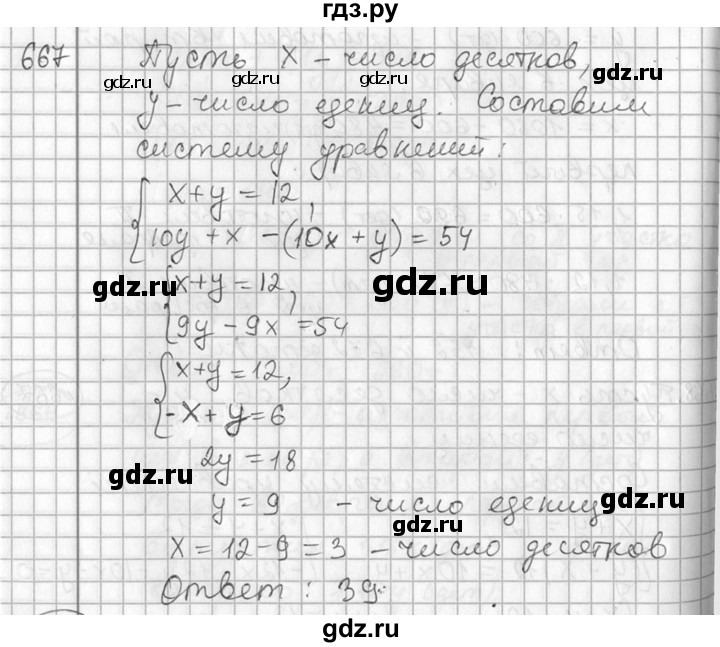 гдз.ру
667 Пусть x – число десятков,
gdz.ru gdz.ru gdz.ru
y – число едениц. Составим
систему уравнений:
{ x+y = 12,
10y + x – (10x + y) = 54
gdz.ru gdz.ru
{ x+y = 12,
9y – 9x = 54
{ x+y = 12,
-x + y = 6
2y = 18
gdz.ru gdz.ru
y = 9 – число едениц
gdz.ru
x = 12 – 9 = 3 – число десятков
gdz.ru
Ответ: 39.
gdz.ru
гдз.ру